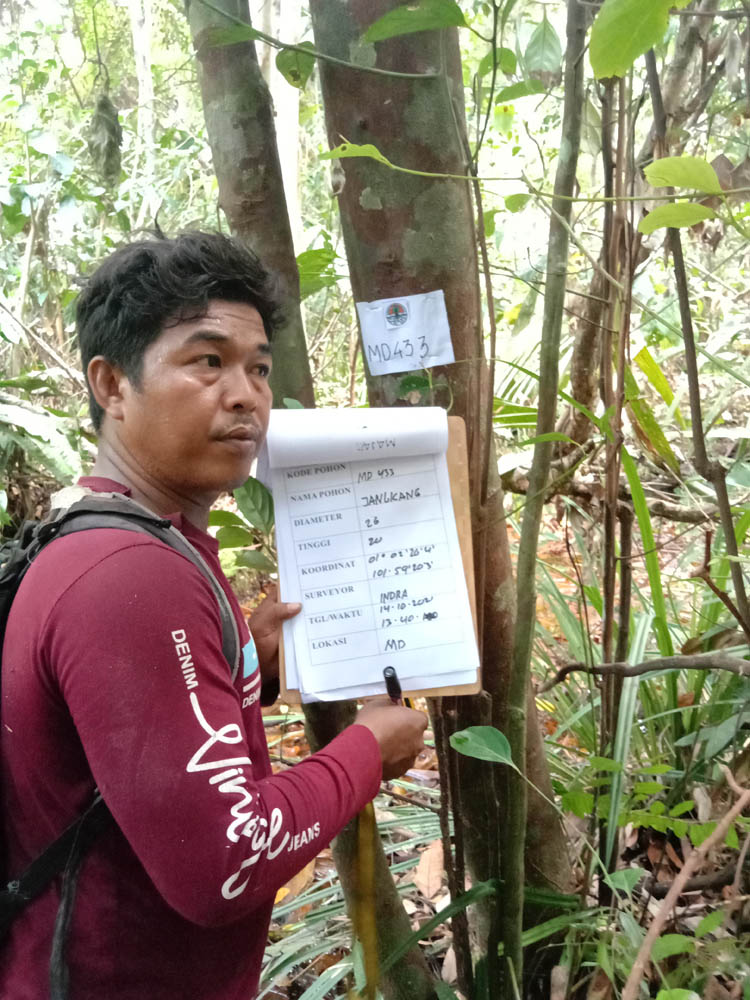 MD433
KODE POHON MD 433
NAMA POHON JANGKANG
DIAMETER 26
TINGGI 20
KOORDINAT 01° 02'20'4"
101·59'20'3"
SURVEYOR INDRA
TGL/WAKTU 14·10·2021
13·40
LOKASI MD
DENIM
JEANS